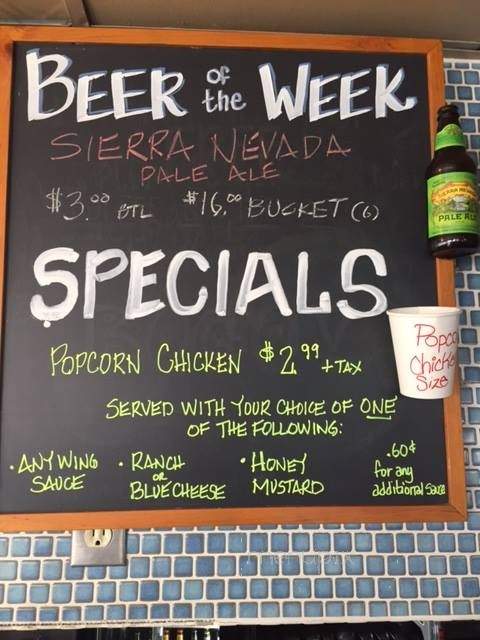 BEER OF the WEEK
SIERRA NEVADA
PALE ALE
$3.00 BTL $16.00 BUCKET (6)
SPECIALS
POPCORN CHICKEN $2.99 + TAX
SERVED WITH YOUR CHOICE OF ONE
OF THE FOLLOWING:
• ANY WING
SAUCE
• RANCH
OR
BLUE CHEESE
• HONEY
MUSTARD
.60¢
for any
additional sauce
PALE ALE
Size